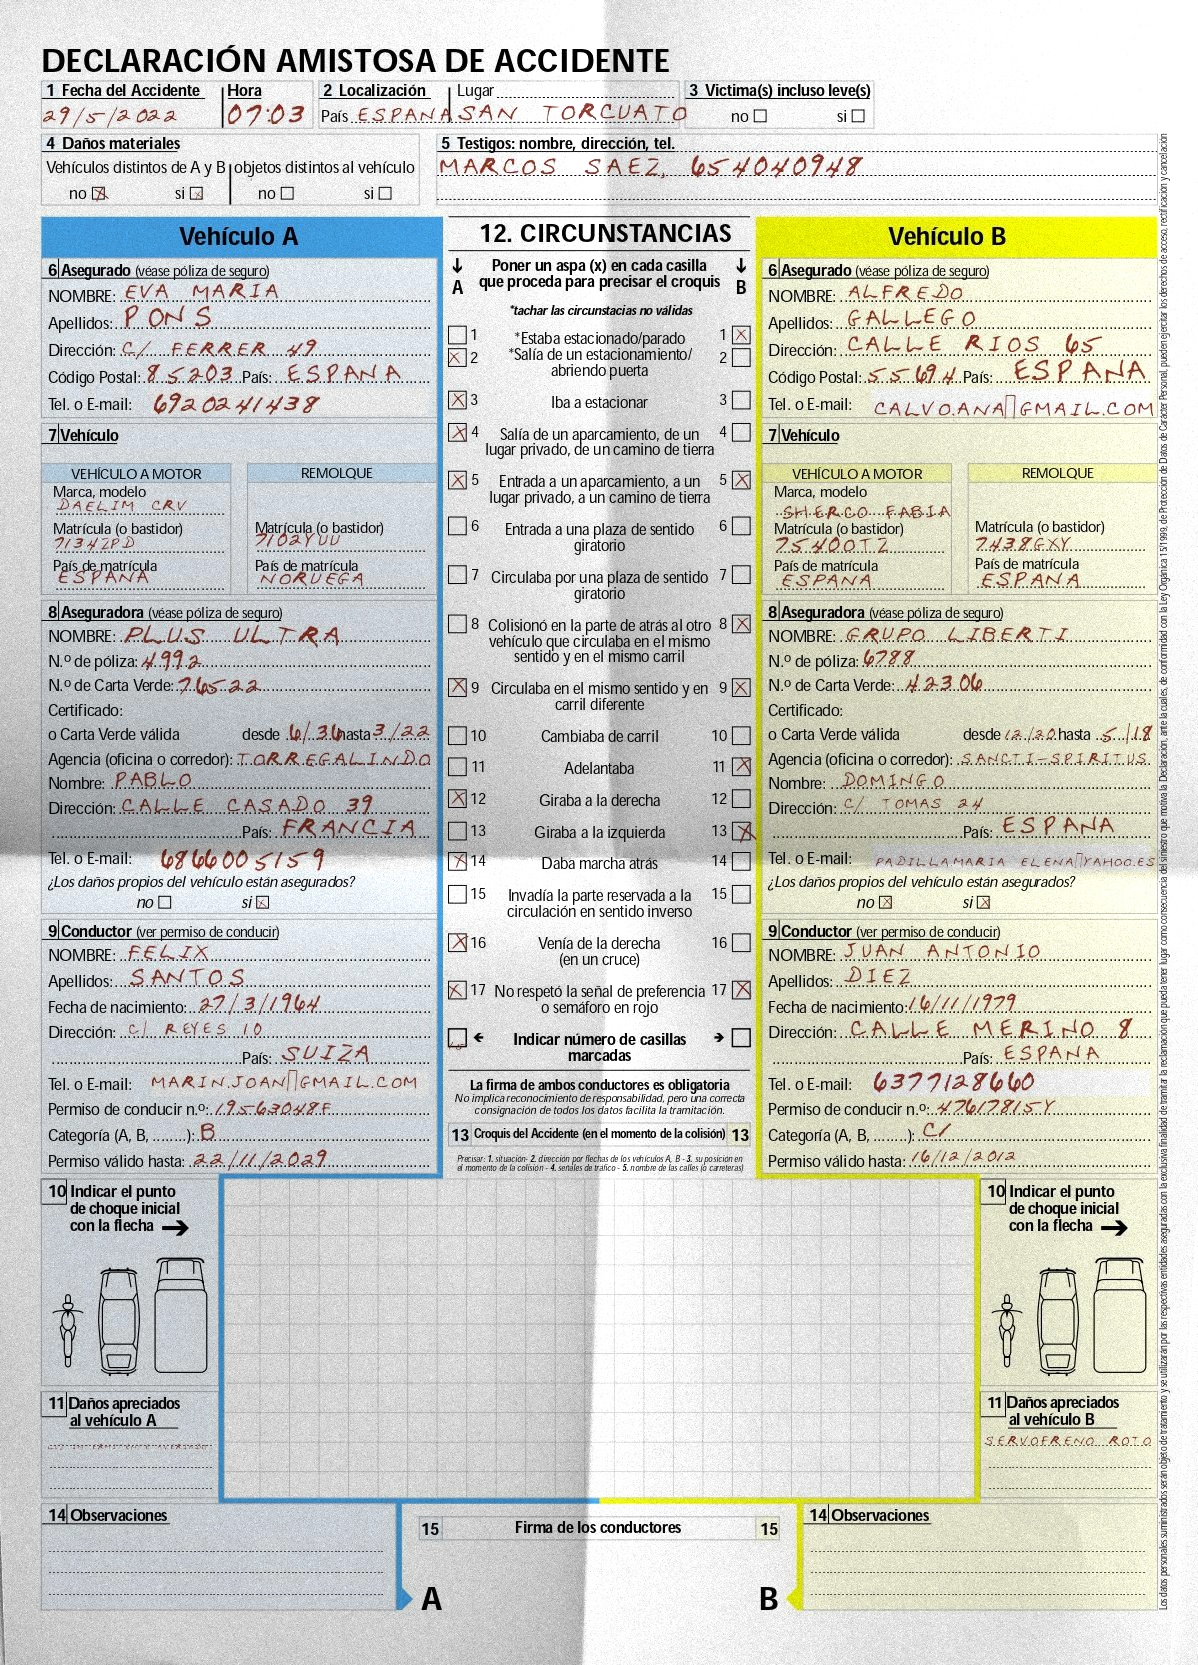 DECLARACIÓN AMISTOSA DE ACCIDENTE
1 Fecha del Accidente Hora 2 Localización Lugar 3 Victima(s) incluso leve(s)
29/5/2022 07:03 País ESPAÑA SAN TORCUATO no si
4 Daños materiales
Vehículos distintos de A y B objetos distintos al vehículo
no X si X no si
5 Testigos: nombre, dirección, tel.
MARCOS SAEZ, 654040948
Vehículo A
6 Asegurado (véase póliza de seguro)
NOMBRE: EVA MARIA
Apellidos: PONS
Dirección: C/ FERRER 49
Código Postal: 85203 País: ESPANA
Tel. o E-mail: 6920241438
7 Vehículo
VEHÍCULO A MOTOR REMOLQUE
Marca, modelo
DAELIM CRV
Matrícula (o bastidor) Matrícula (o bastidor)
7134ZPD 7102YUU
País de matrícula País de matrícula
ESPANA NORUEGA
8 Aseguradora (véase póliza de seguro)
NOMBRE: PLUS ULTRA
N.º de póliza: 4992
N.º de Carta Verde: 76522
Certificado:
o Carta Verde válida desde 6/36 hasta 3/22
Agencia (oficina o corredor): TORREGALINDO
Nombre: PABLO
Dirección: CALLE CASADO 39
País: FRANCIA
Tel. o E-mail: 6866005159
¿Los daños propios del vehículo están asegurados?
no si X
9 Conductor (ver permiso de conducir)
NOMBRE: FELIX
Apellidos: SANTOS
Fecha de nacimiento: 27/3/1964
Dirección: C/ REYES 10
País: SUIZA
Tel. o E-mail: MARIN.JOAN▯GMAIL.COM
Permiso de conducir n.º: 19563048F
Categoría (A, B, ........): B
Permiso válido hasta: 22/11/2029
12. CIRCUNSTANCIAS
A Poner un aspa (x) en cada casilla que proceda para precisar el croquis B
*tachar las circunstacias no válidas
1 *Estaba estacionado/parado 1 X
X 2 *Salía de un estacionamiento/ 2
abriendo puerta
X 3 Iba a estacionar 3
X 4 Salía de un aparcamiento, de un 4
lugar privado, de un camino de tierra
X 5 Entrada a un aparcamiento, a un 5 X
lugar privado, a un camino de tierra
6 Entrada a una plaza de sentido 6
giratorio
7 Circulaba por una plaza de sentido 7
giratorio
8 Colisionó en la parte de atrás al otro 8 X
vehículo que circulaba en el mismo
sentido y en el mismo carril
X 9 Circulaba en el mismo sentido y en 9 X
carril diferente
10 Cambiaba de carril 10
11 Adelantaba 11 X
X 12 Giraba a la derecha 12
13 Giraba a la izquierda 13 X
X 14 Daba marcha atrás 14
15 Invadía la parte reservada a la 15
circulación en sentido inverso
X 16 Venía de la derecha 16
(en un cruce)
X 17 No respetó la señal de preferencia 17 X
o semáforo en rojo
← Indicar número de casillas →
marcadas
La firma de ambos conductores es obligatoria
No implica reconocimiento de responsabilidad, pero una correcta
consignación de todos los datos facilita la tramitación.
13 Croquis del Accidente (en el momento de la colisión) 13
Precisar: 1. situación- 2. dirección por flechas de los vehículos A, B - 3. su posición en
el momento de la colisión - 4. señales de tráfico - 5. nombre de las calles (o carreteras)
Vehículo B
6 Asegurado (véase póliza de seguro)
NOMBRE: ALFREDO
Apellidos: GALLEGO
Dirección: CALLE RIOS 65
Código Postal: 55694 País: ESPANA
Tel. o E-mail: CALVO.ANA▯GMAIL.COM
7 Vehículo
VEHÍCULO A MOTOR REMOLQUE
Marca, modelo
SHERCO FABIA
Matrícula (o bastidor) Matrícula (o bastidor)
75400TZ 7438GXY
País de matrícula País de matrícula
ESPANA ESPANA
8 Aseguradora (véase póliza de seguro)
NOMBRE: GRUPO LIBERTI
N.º de póliza: 6788
N.º de Carta Verde: 42306
Certificado:
o Carta Verde válida desde 12/20 hasta 5/18
Agencia (oficina o corredor): SANCTI-SPIRITUS
Nombre: DOMINGO
Dirección: C/ TOMAS 24
País: ESPANA
Tel. o E-mail: PADILLAMARIA ELENA▯YAHOO.ES
¿Los daños propios del vehículo están asegurados?
no X si X
9 Conductor (ver permiso de conducir)
NOMBRE: JUAN ANTONIO
Apellidos: DIEZ
Fecha de nacimiento: 16/11/1979
Dirección: CALLE MERINO 8
País: ESPANA
Tel. o E-mail: 6377128660
Permiso de conducir n.º: 47617815Y
Categoría (A, B, ........): C1
Permiso válido hasta: 16/12/2012
10 Indicar el punto
de choque inicial
con la flecha →
11 Daños apreciados
al vehículo A
10 Indicar el punto
de choque inicial
con la flecha →
11 Daños apreciados
al vehículo B
SERVOFRENO ROTO
14 Observaciones
15 Firma de los conductores 15
A B
14 Observaciones
Los datos personales suministrados serán objeto de tratamiento y se utilizarán por las respectivas entidades aseguradas con la exclusiva finalidad de tramitar la reclamación que pueda tener lugar como consecuencia del siniestro que motiva la Declaración, ante la cuales, de conformidad con la Ley Orgánica 15/1999, de Protección de Datos de Carácter Personal, pueden ejercitar los derechos de acceso, rectificación y cancelación